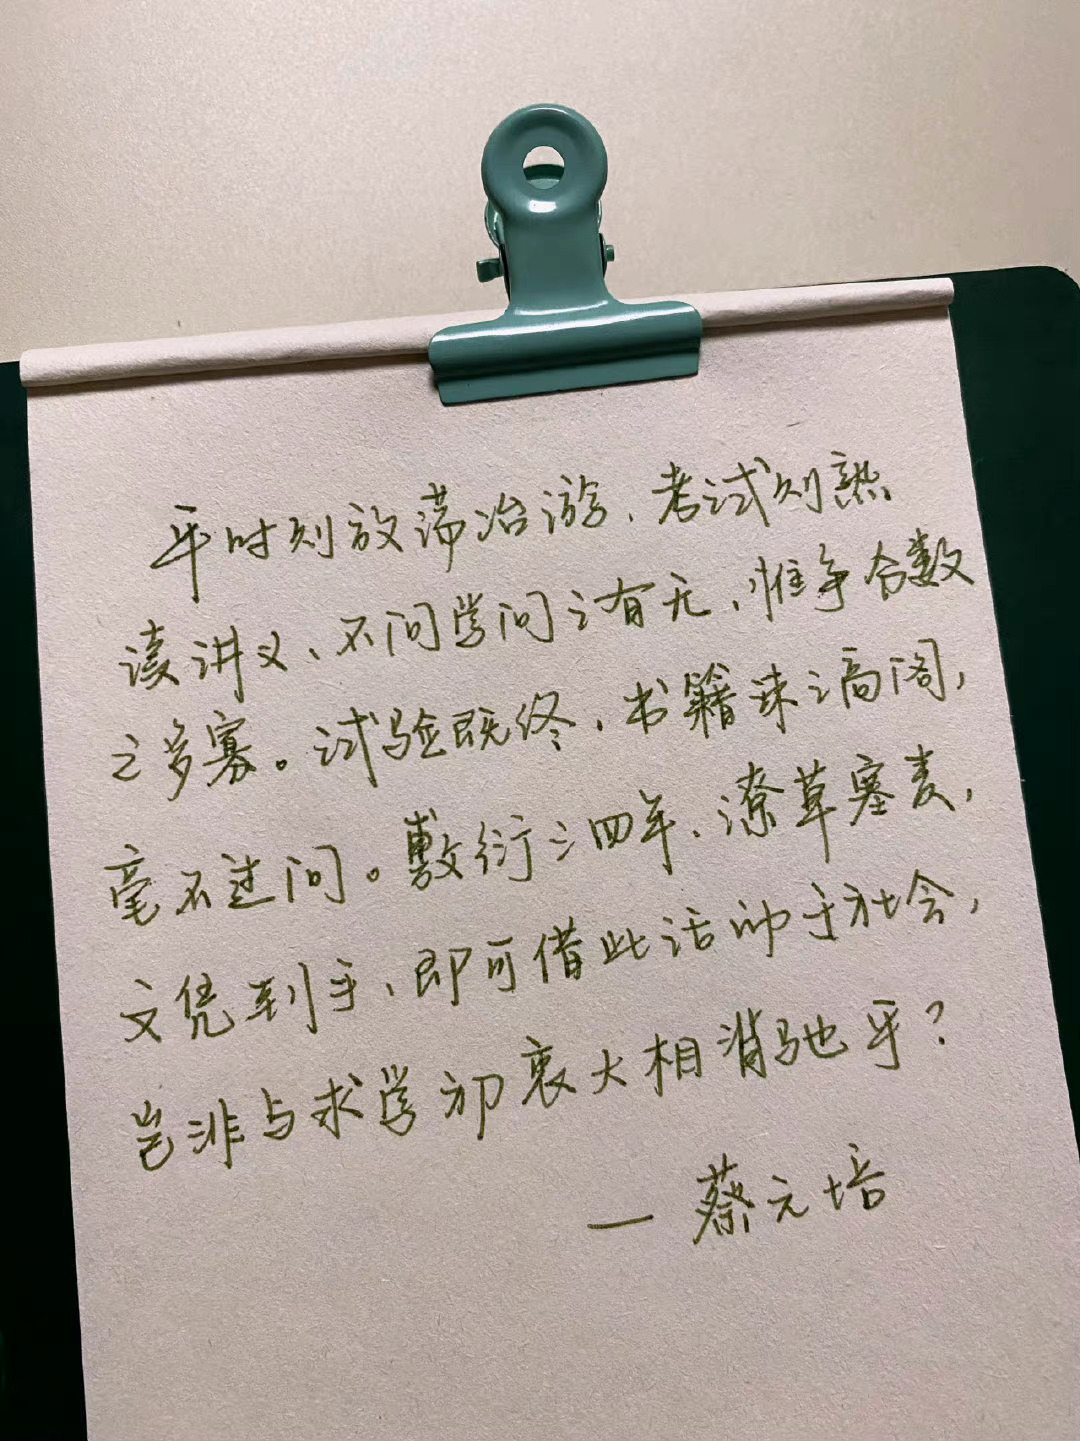 平时则放荡冶游、考试则熟
读讲义、不问学问之有无、惟争分数
之多寡。试验既终、书籍束之高阁，
毫不过问。敷衍三四年、潦草塞责，
文凭到手、即可借此活动于社会，
岂非与求学初衷大相背驰乎？
— 蔡元培